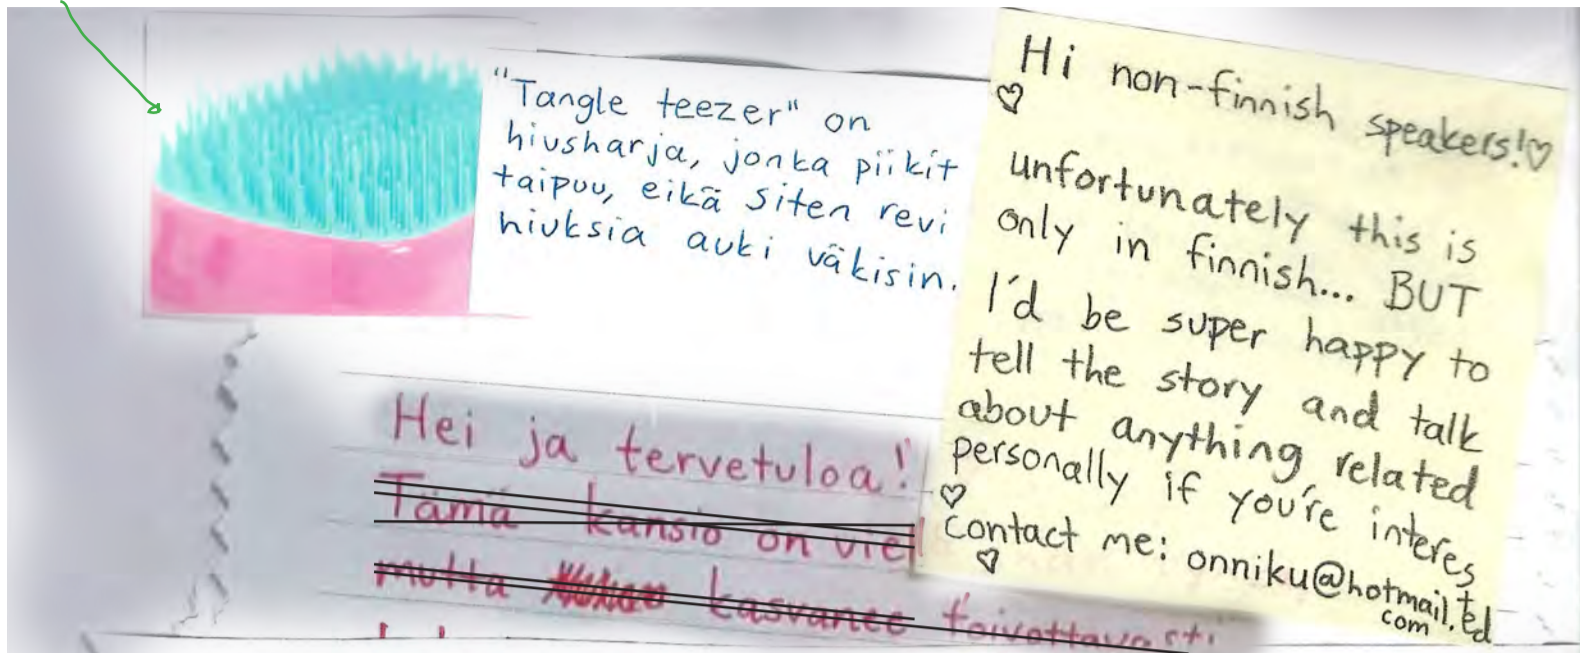 "Tangle teezer" on
hiusharja, jonka piikit
taipuu, eikä siten revi
hiuksia auki väkisin.
Hi non-finnish speakers!♡
♡
unfortunately this is
only in finnish... BUT
I'd be super happy to
tell the story and talk
about anything related
personally if you're interes
ted
♡
contact me: onniku@hotmail.
com
♡
Hei ja tervetuloa!
Tämä kansio on viel
mutta kasvanee toivottavasti